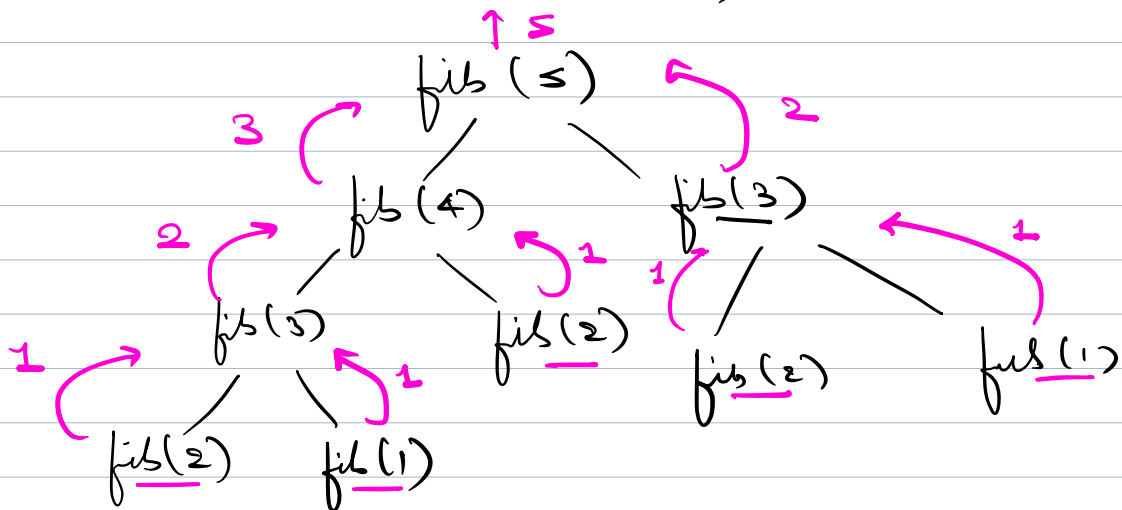 5
fib (5)
3 2
fib (4) fib(3)
2 1 1 1
fib(3) fib(2) fib(2) fib(1)
1 1
fib(2) fib(1)